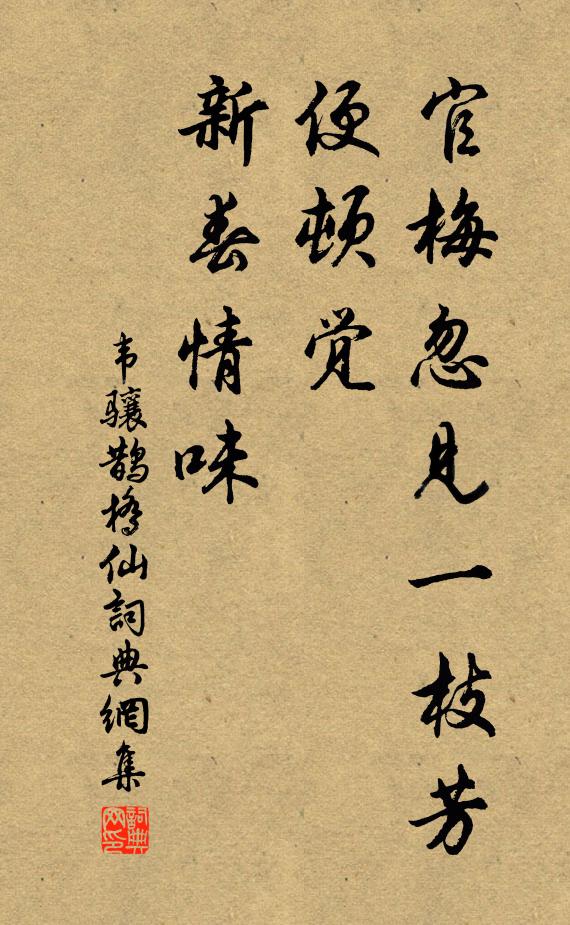 官梅忽见一枝芳
便顿觉
新春情味
韦骧鹊桥仙詞典網集
詞典网印